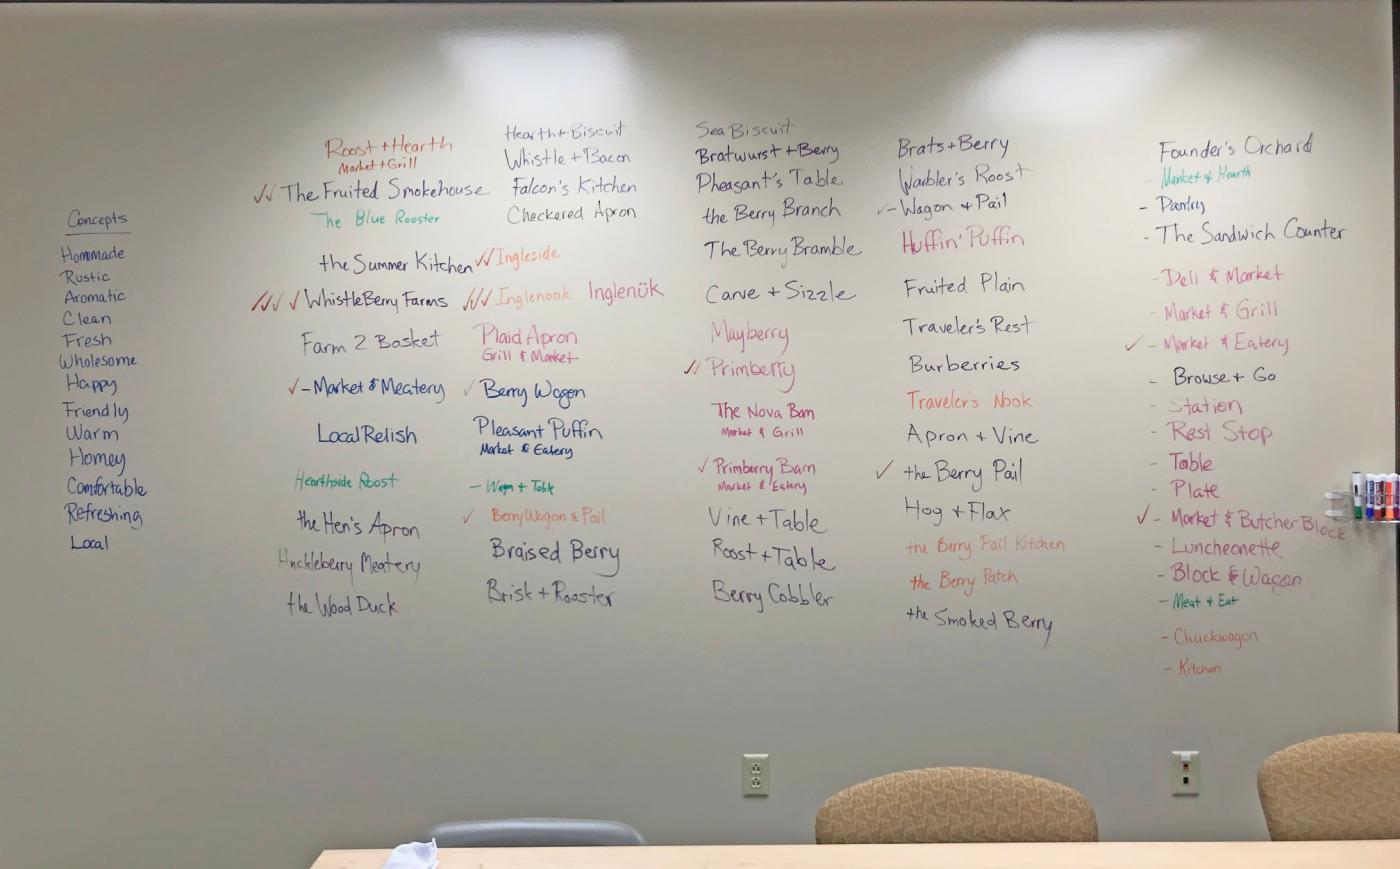 Concepts
Hommade
Rustic
Aromatic
Clean
Fresh
Wholesome
Happy
Friendly
Warm
Homey
Comfortable
Refreshing
Local
Roost + Hearth
Market + Grill
✓✓ The Fruited Smokehouse
The Blue Rooster
the Summer Kitchen
✓✓✓ ✓ WhistleBerry Farms
Farm 2 Basket
✓ - Market & Meatery
Local Relish
Hearthside Roost
the Hen's Apron
Huckleberry Meatery
the Wood Duck
Hearth + Biscuit
Whistle + Bacon
Falcon's Kitchen
Checkered Apron
✓✓ Ingleside
✓✓✓ Inglenook Inglenük
Plaid Apron
Grill & Market
✓ Berry Wagon
Pleasant Puffin
Market & Eatery
- Wagon + Table
✓ Berry Wagon & Pail
Braised Berry
Brisk + Rooster
Sea Biscuit
Bratwurst + Berry
Pheasant's Table
the Berry Branch
The Berry Bramble
Carve + Sizzle
Mayberry
✓✓ Primberry
The Nova Barn
Market & Grill
✓ Primberry Barn
Market & Eatery
Vine + Table
Roost + Table
Berry Cobbler
Brats + Berry
Warbler's Roost
✓ - Wagon & Pail
Huffin' Puffin
Fruited Plain
Traveler's Rest
Burberries
Traveler's Nook
Apron + Vine
✓ the Berry Pail
Hog + Flax
the Berry Pail Kitchen
the Berry Patch
the Smoked Berry
Founder's Orchard
Market & Hearth
- Pantry
- The Sandwich Counter
- Deli & Market
- Market & Grill
✓ - Market & Eatery
- Browse + Go
- Station
- Rest Stop
- Table
- Plate
✓ - Market & Butcher Block
- Luncheonette
- Block & Wagon
- Meat + Eat
- Chuckwagon
- Kitchen